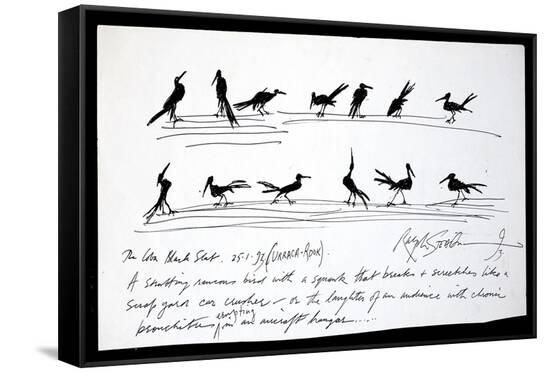 The Coba Black Slat. 25.1.92 (URRACA-ROOK).
Ralph STEADman 92
A strutting raucous bird with a squawk that breaks + screeches like a
scrap yard car crusher - or the laughter of an audience with chronic
bronchitis erupting in an aircraft hangar......